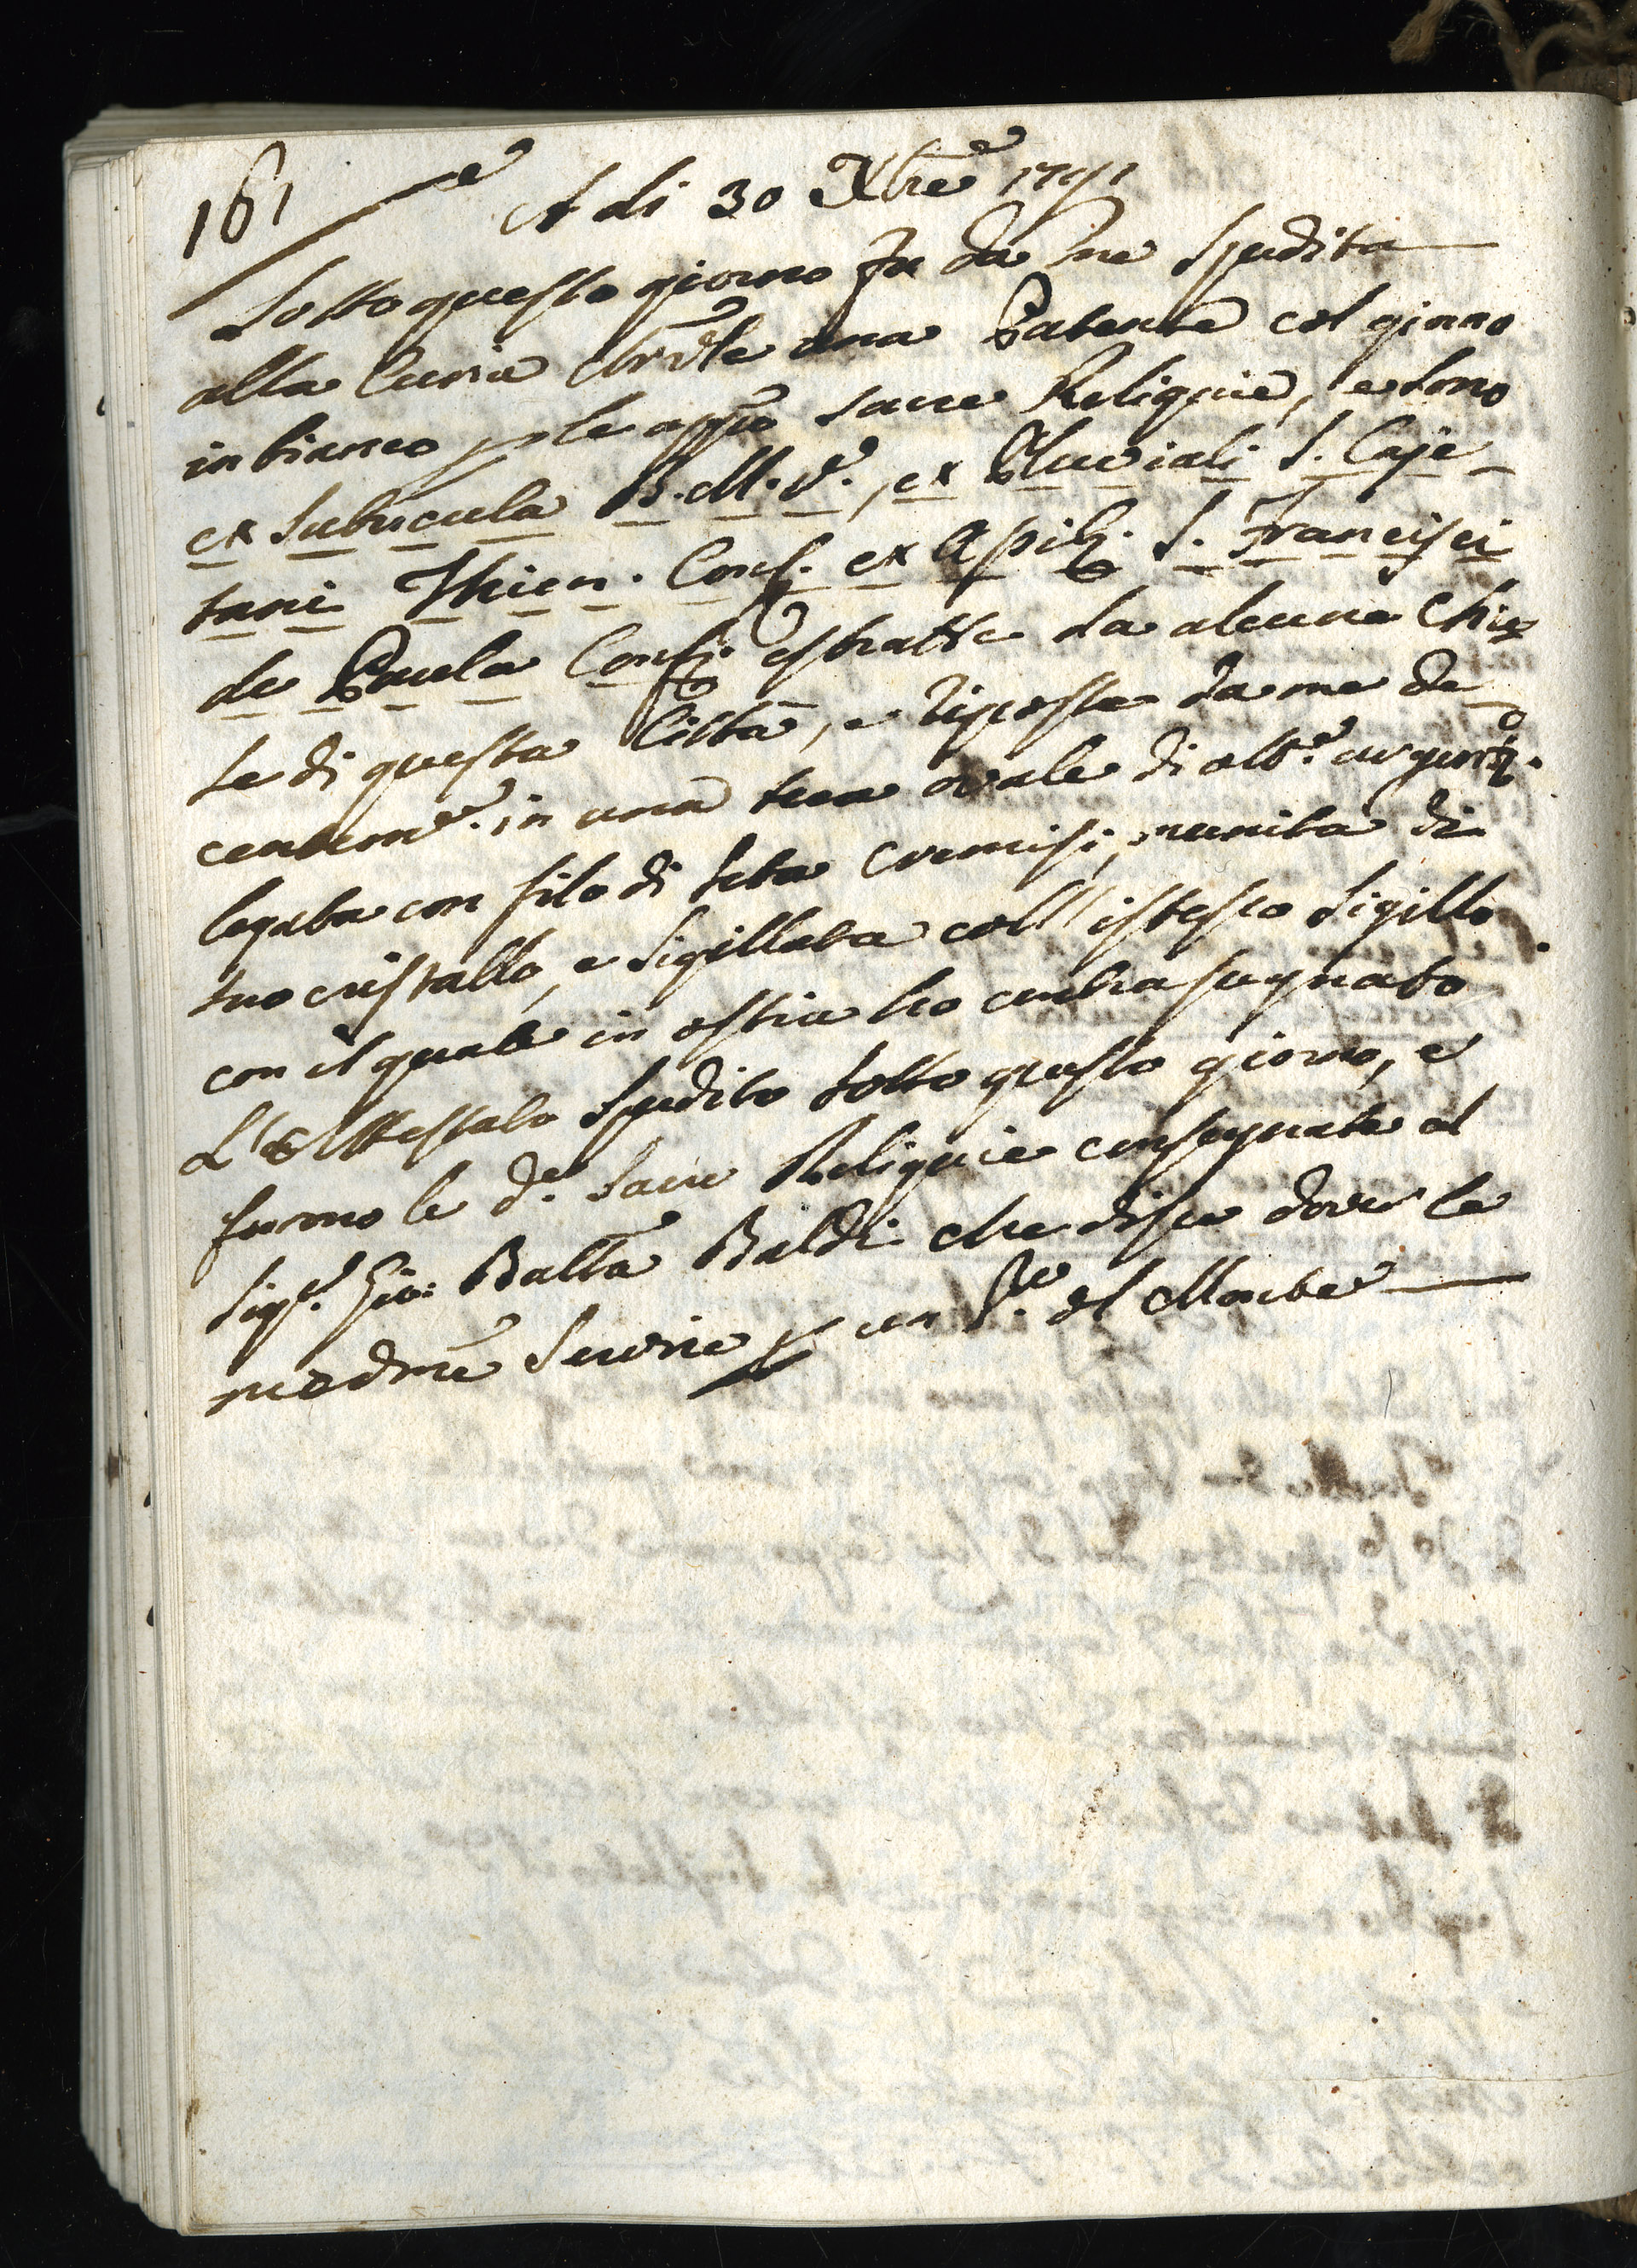 161
A di 30 Xbre 1791
Sotto questo giorno fu da me spedita
alla Curia una Patente col giorno
in bianco p le appõ sacre Reliquie, e sono
ex Subucula B. M. V., ex Pluviali S. Caje-
tani Thien. Conf. ex Apilis. S. Francisci
de Paula Conf. estratte da alcune Chie
se di questa Città, e riposte da me de
centem.e in una teca ovale di ott.e argent.
legata con filo di seta cremisi, munita di
suo cristallo, e sigillata coll'istesso Sigillo
con il quale in ostia ho contrasegnato
L'Attestato spedito sotto questo giorno, e
furno le d.e Sacre Reliquie consegnate al
Sig.r Gio: Batta Baldi che disse dover le
medme servire p un S.e al Monte